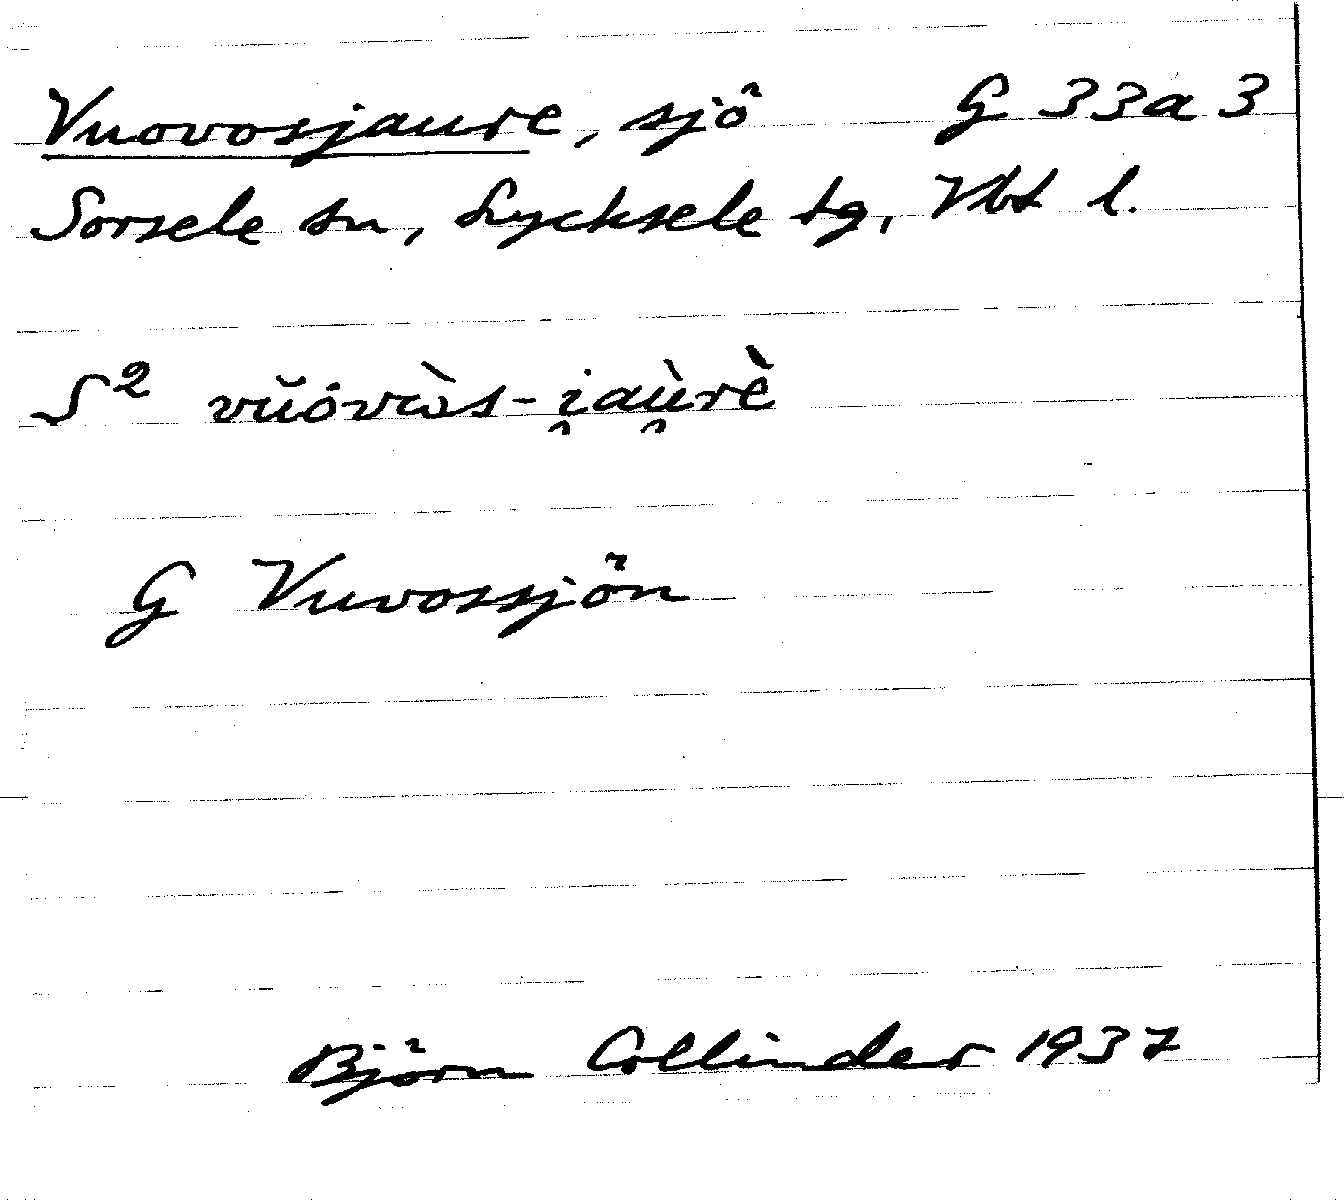 Vuovosjaure, sjö G 33a3
Sorsele sn, Lycksele tg, Vbt l.
S² vŭȯvωs̀-i̯aù̯rè
G Vuvossjön
Björn Collinder 1937